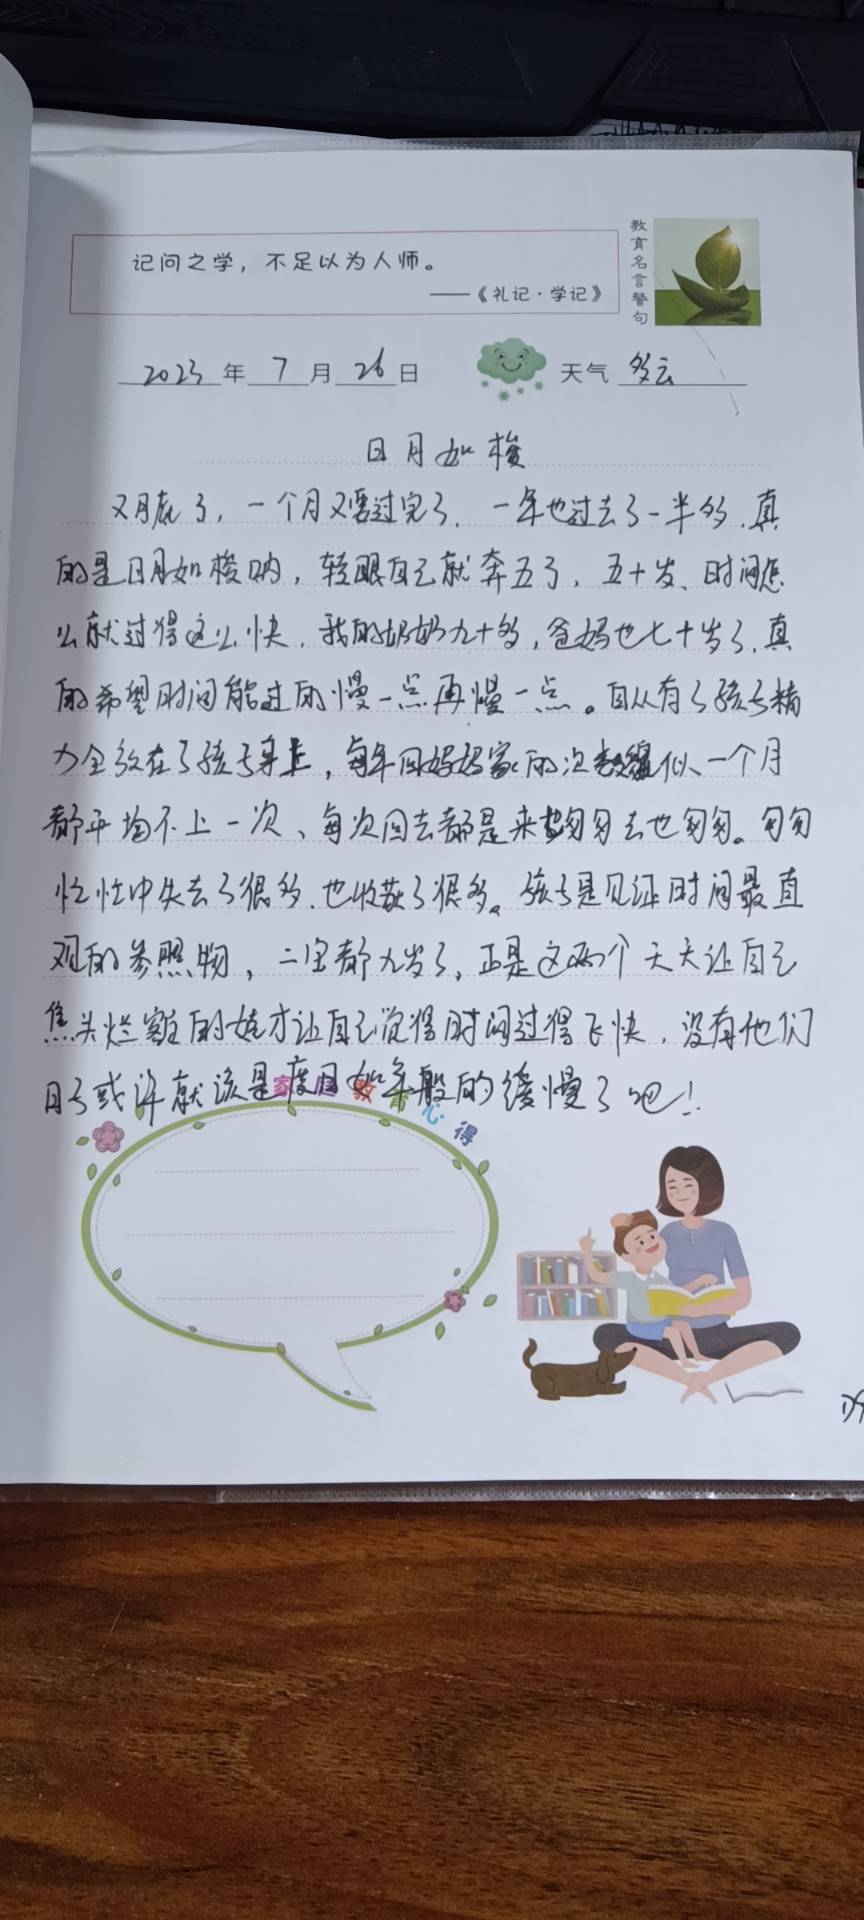 记问之学，不足以为人师。
——《礼记·学记》
教育名言警句
2023年7月26日 天气 多云
日月如梭
又月底了，一个月又要过完了，一年也过去了一半多，真
的是日月如梭呐，转眼自己就奔五了，五十岁、时间怎
么就过得这么快，我的奶奶九十多，爸妈也七十岁了，真
的希望时间能过的慢一点再慢一点。自从有了孩子精
力全放在了孩子身上，每年回妈妈家的次数 一个月
都平均不上一次、每次回去都是来匆匆去也匆匆。匆匆
忙忙中失去了很多，也收获了很多。孩子是见证时间最直
观的参照物，二宝都九岁了，正是这两个天天让自己
焦头烂额的娃才让自己觉得时间过得飞快，没有他们
日子或许就该是度日如年般的缓慢了吧！
家庭教育心得